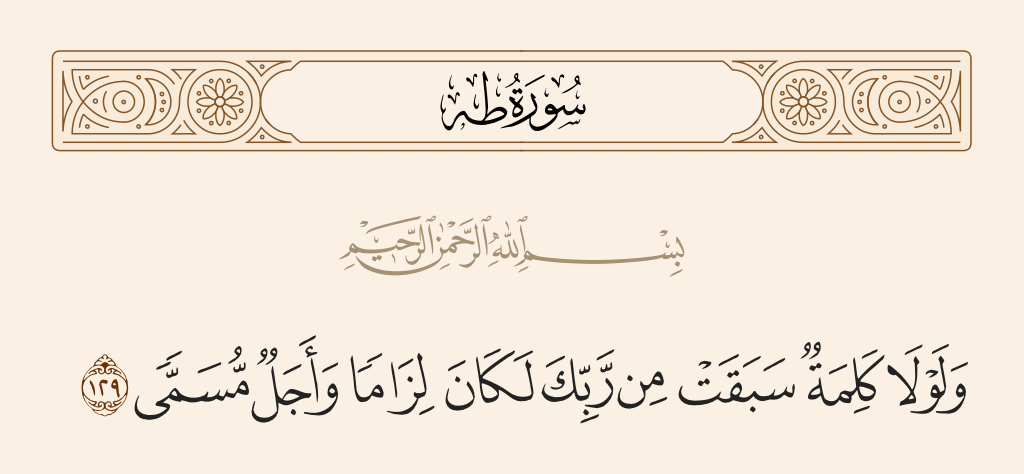 سُورَةُ طه
بِسْمِ ٱللَّهِ ٱلرَّحْمَٰنِ ٱلرَّحِيمِ
وَلَوْلَا كَلِمَةٌ سَبَقَتْ مِن رَّبِّكَ لَكَانَ لِزَامًا وَأَجَلٌ مُّسَمًّى ١٢٩